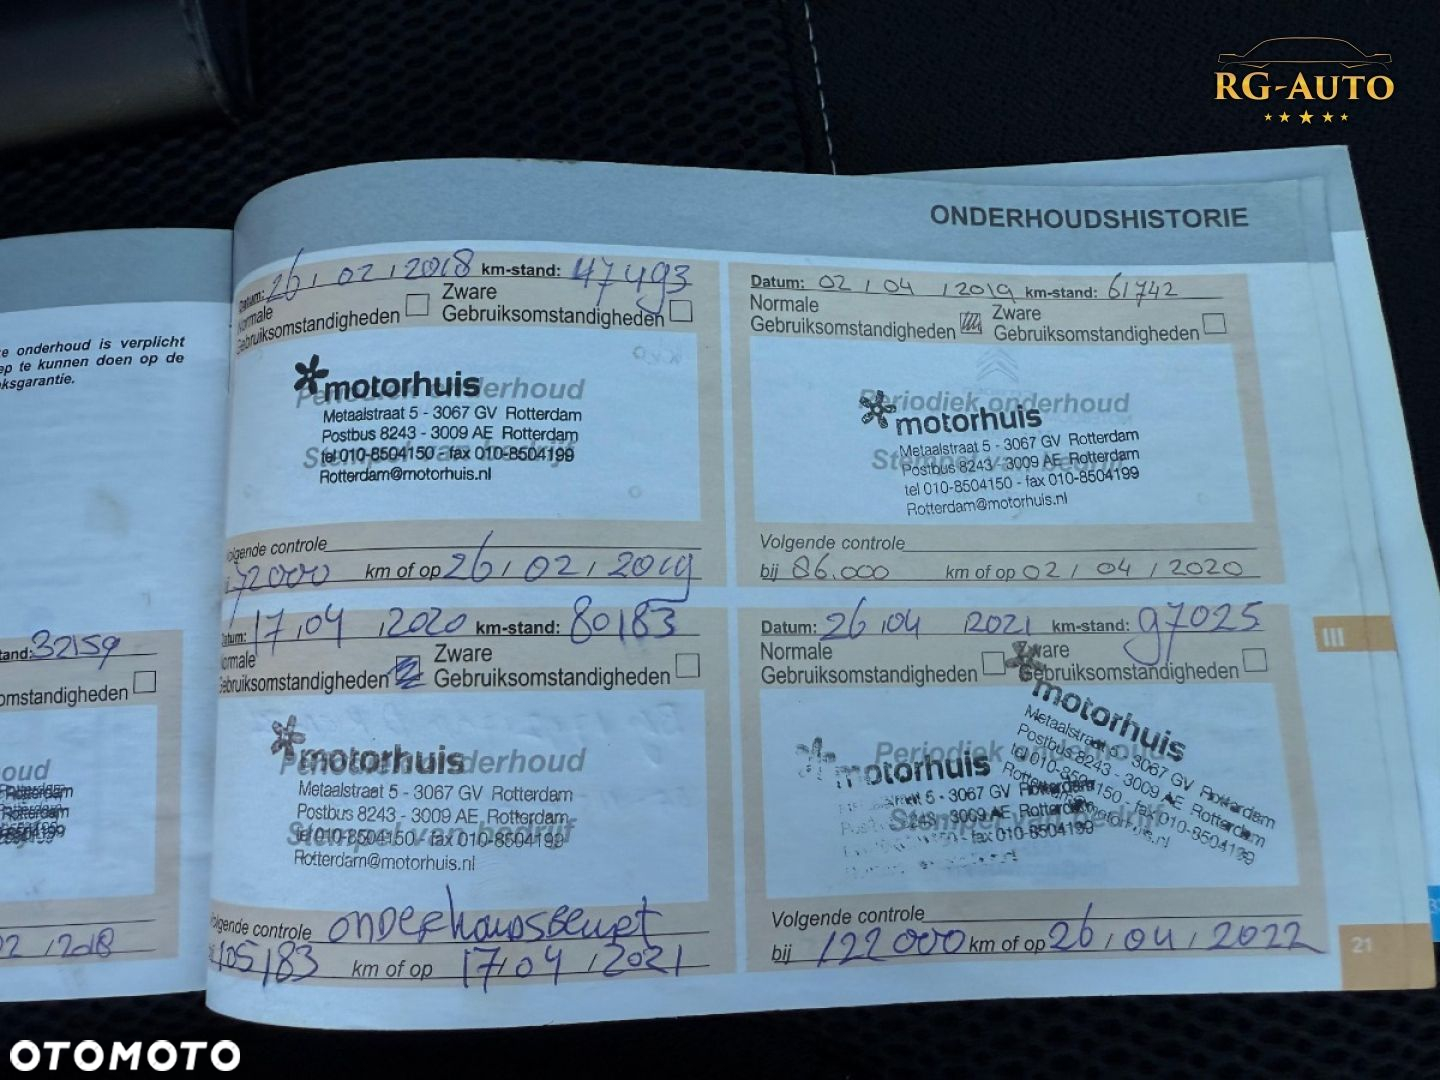 RG-AUTO
ONDERHOUDSHISTORIE
e onderhoud is verplicht
ep te kunnen doen op de
ksgarantie.
tand: 32159
omstandigheden
oud
Rotterdam
Rotterdam
02 / 2018
Datum: 26 / 02 / 2018 km-stand: 47493
Normale Gebruiksomstandigheden
Zware Gebruiksomstandigheden
Periodiek onderhoud
Stempel van bedrijf
motorhuis
Metaalstraat 5 - 3067 GV Rotterdam
Postbus 8243 - 3009 AE Rotterdam
tel 010-8504150 fax 010-8504199
Rotterdam@motorhuis.nl
Volgende controle
72000 km of op 26 / 02 / 2019
Datum: 02 / 04 / 2019 km-stand: 61742
Normale Gebruiksomstandigheden
Zware Gebruiksomstandigheden
Periodiek onderhoud
Stempel van bedrijf
motorhuis
Metaalstraat 5 - 3067 GV Rotterdam
Postbus 8243 - 3009 AE Rotterdam
tel 010-8504150 - fax 010-8504199
Rotterdam@motorhuis.nl
Volgende controle
bij 86.000 km of op 02 / 04 / 2020
Datum: 17 / 04 / 2020 km-stand: 80183
Normale Gebruiksomstandigheden
Zware Gebruiksomstandigheden
Periodiek onderhoud
Stempel van bedrijf
motorhuis
Metaalstraat 5 - 3067 GV Rotterdam
Postbus 8243 - 3009 AE Rotterdam
tel 010-8504150 - fax 010-8504199
Rotterdam@motorhuis.nl
Volgende controle onderhoudsbeurt
105183 km of op 17 / 04 / 2021
Datum: 26 / 04 / 2021 km-stand: 97025
Normale Gebruiksomstandigheden
Zware Gebruiksomstandigheden
Periodiek onderhoud
Stempel van bedrijf
motorhuis
Metaalstraat 5 - 3067 GV Rotterdam
Postbus 8243 - 3009 AE Rotterdam
tel 010-8504150 - fax 010-8504199
motorhuis
5 - 3067 GV Rotterdam
8243 - 3009 AE Rotterdam
- fax 010-8504199
Volgende controle
bij 122000 km of op 26 / 04 / 2022
III
21
OTOMOTO